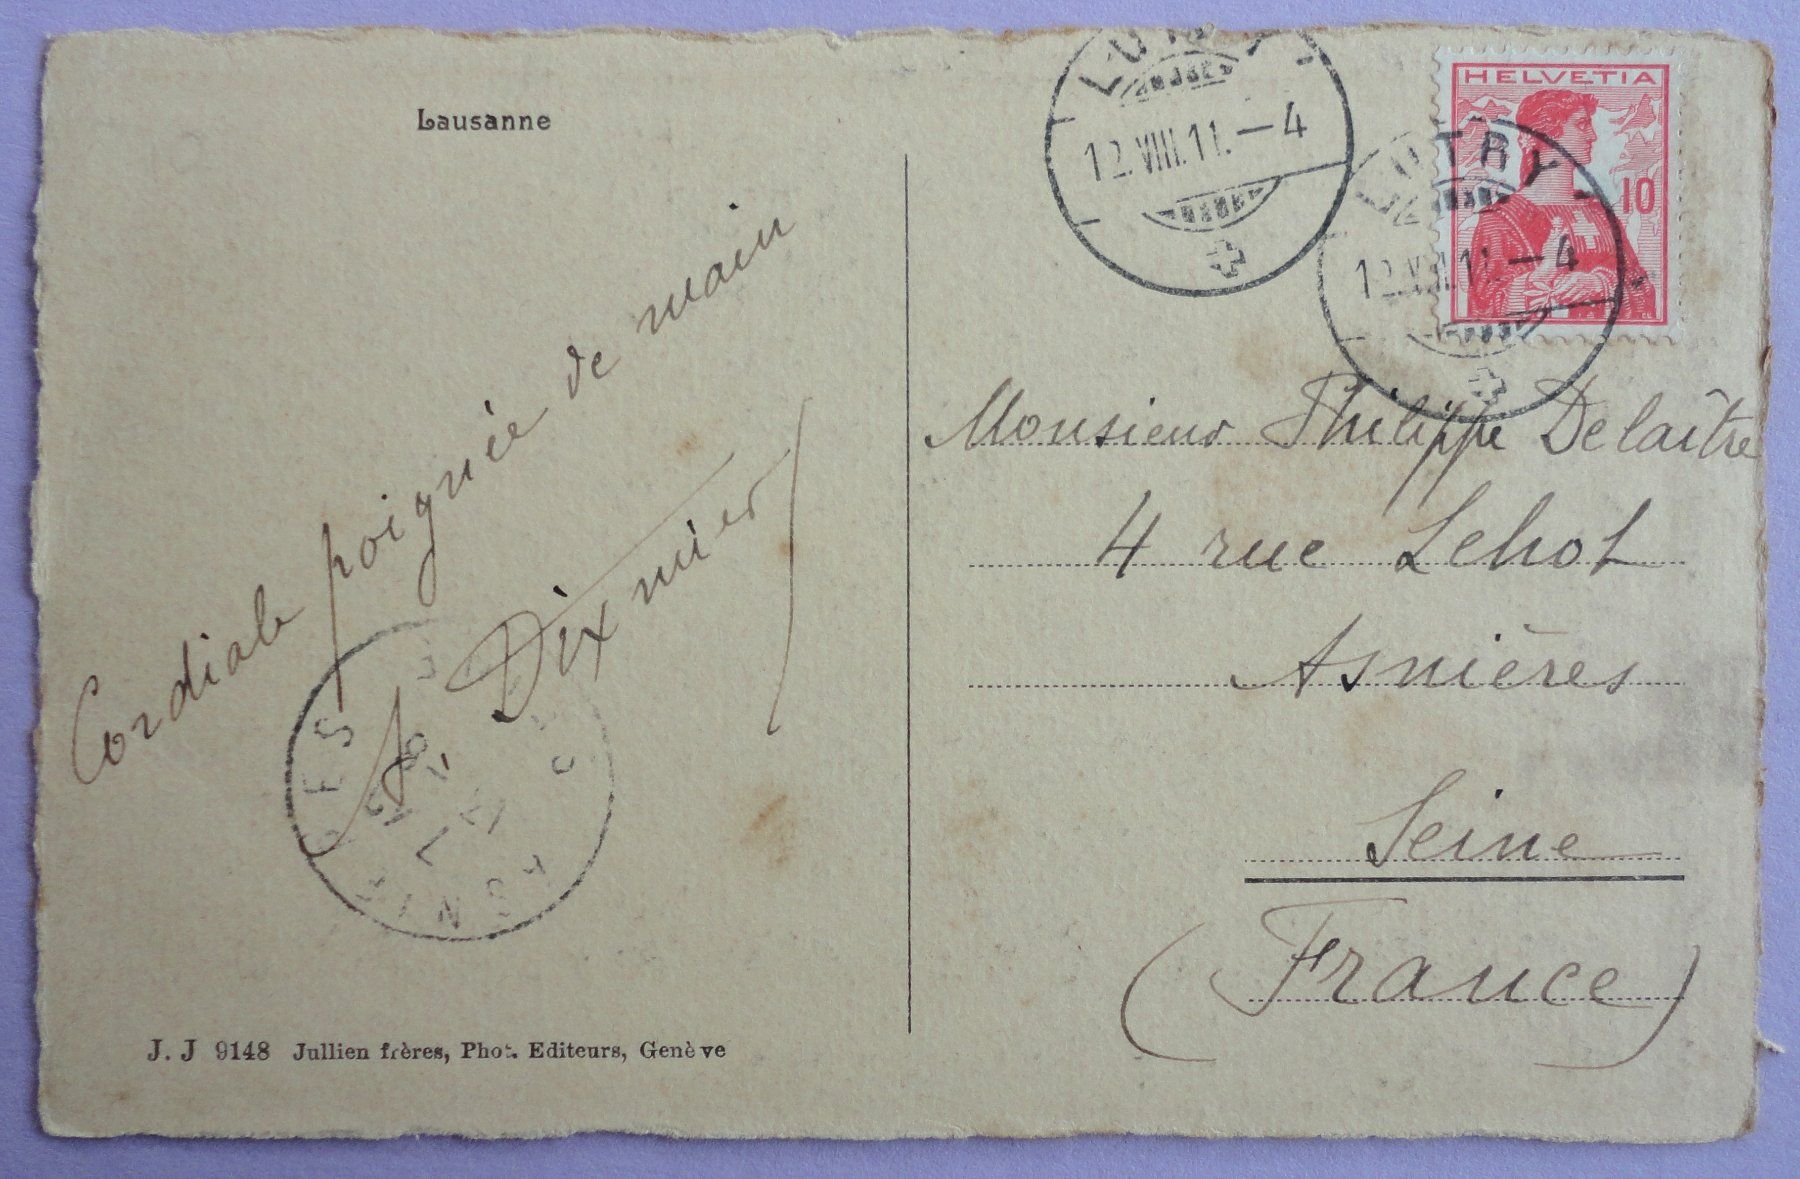 Lausanne
Cordiale poignée de main
A. Dixmier
J. J 9148 Jullien frères, Phot. Editeurs, Genève
LUTRY
12.VIII.11.—4
HELVETIA
10
LUTRY
12.VIII.11.—4
Monsieur Philippe Delaître
4 rue Lehot
Asnières
Seine
(France)